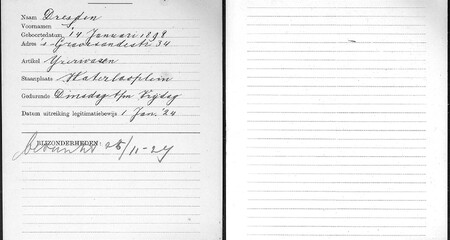 Naam Dresden
Voornamen
Geboortedatum, 14 Januari 1892
Adres 's Gravesandestr. 34
Artikel IJzerwaren
Staanplaats Waterlooplein
Gedurende Dinsdag t/m Vrijdag
Datum uitreiking legitimatiebewijs 1 Jan. '24
BIJZONDERHEDEN:
26/11-27